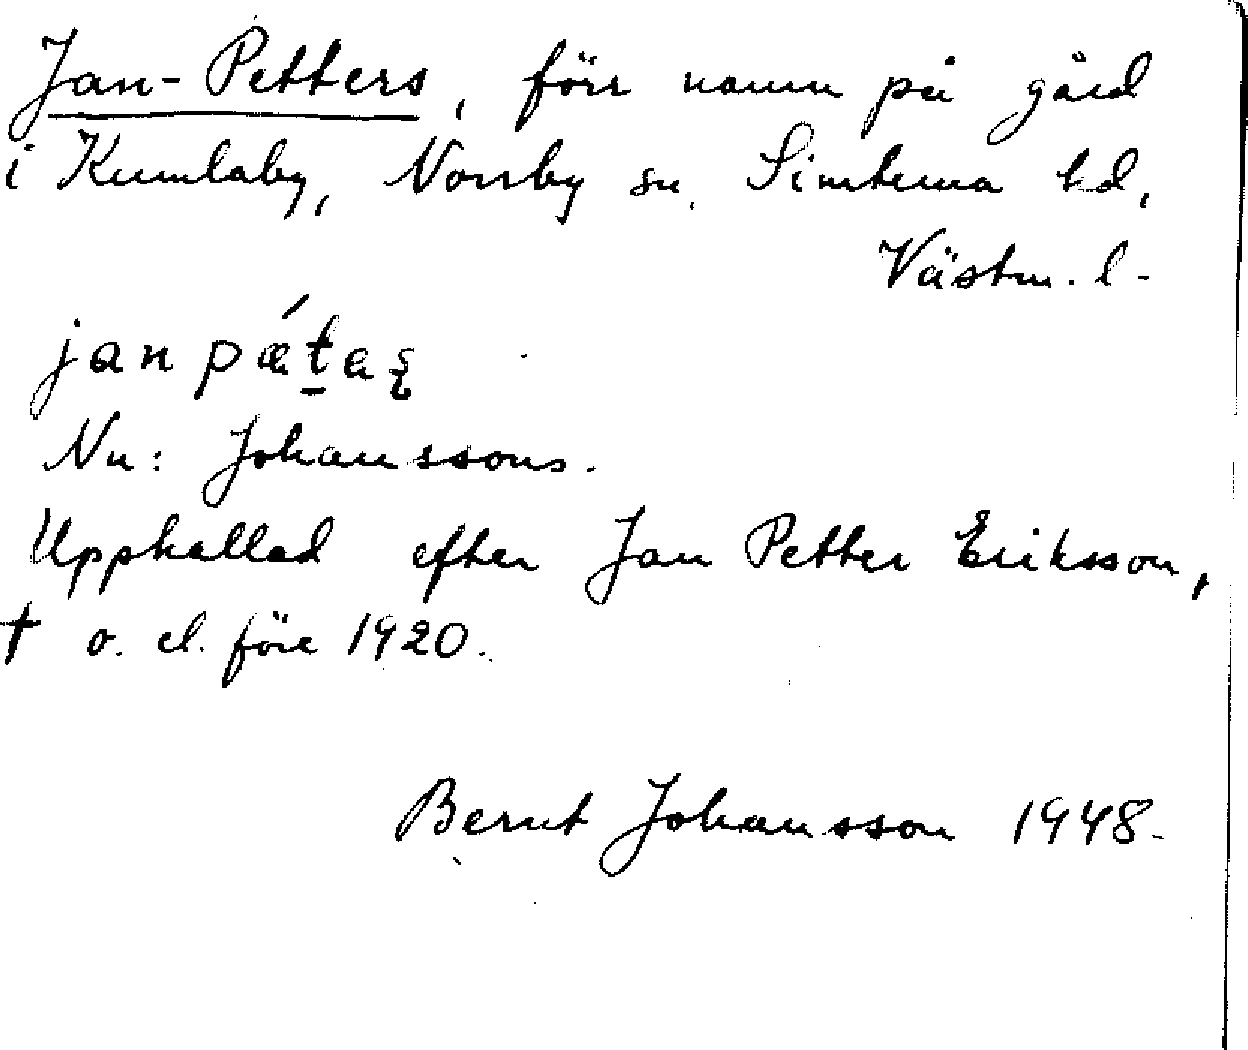 Jan-Petters, förr namn på gård
i Kumlaby, Norrby sn, Simtuna hd,
Västm. l.
jan pǽt̠aʂ
Nu: Johanssons.
Uppkallad efter Jan Petter Eriksson,
† o. el. före 1920.
Bernt Johansson 1948.